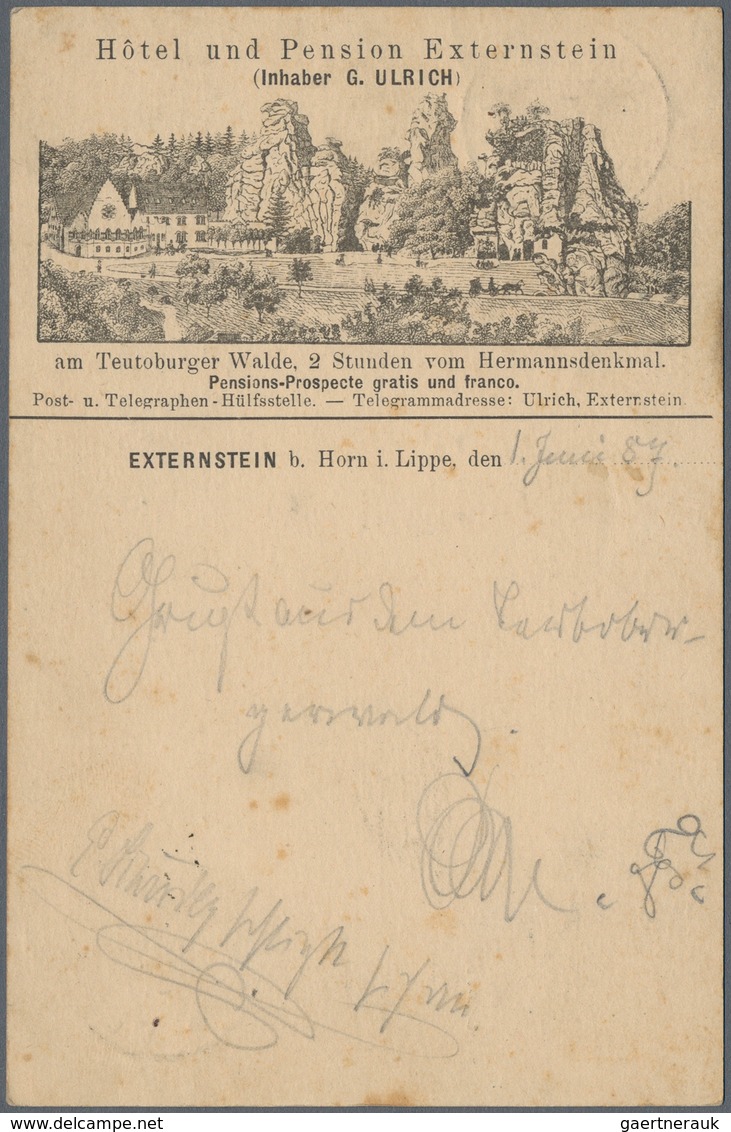 Hôtel und Pension Externstein
(Inhaber G. ULRICH)
am Teutoburger Walde, 2 Stunden vom Hermannsdenkmal.
Pensions-Prospecte gratis und franco.
Post- u. Telegraphen-Hülfsstelle. — Telegrammadresse: Ulrich, Externstein.
EXTERNSTEIN b. Horn i. Lippe, den 1. Juni 87.
aus dem
gerwald
schon
Delcampe.net
gaertnerauk